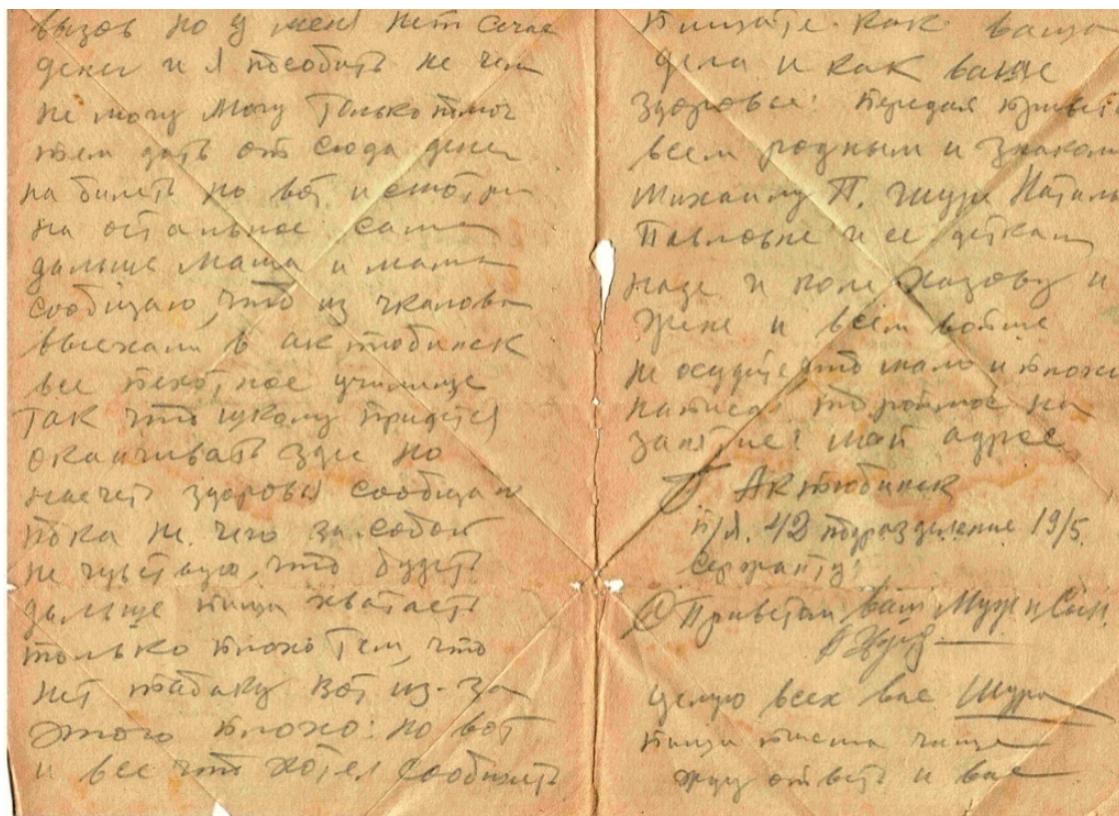 вызов но у меня нет сечас
денег и я пособить не чем
не могу могу только
дать от сюда денег
на билеть но вот и смотри
на остальное сами
дальше Маша и мама
сообщаю, что из чкалова
выехали в актюбинск
все пехотное училище
так что школу придется
оканчивать здес но
насчет здоровья сообщаю
пока не чего за собой
не чувствую, что будеть
дальше пищи хватаеть
только плохо тем, что
нет табаку вот из-за
этого плохо: но вот
и все что хотел сообщить
Пишите как ваши
дела и как ваше
здоровье: передай привет
всем родным и знаком
Михаилу П. шуре Натал
Павловне и ее деткам
наде и коле и
жене и всем
не осудите что мало и плохо
написал на
занятие: мой адрес
Г Актюбинск
п/я. 42 подразделение 19/5
Сержанту:
С Приветом ваш Муж и Сын.
целую всех вас Шура
пиши письма чаще
жду ответь и вас